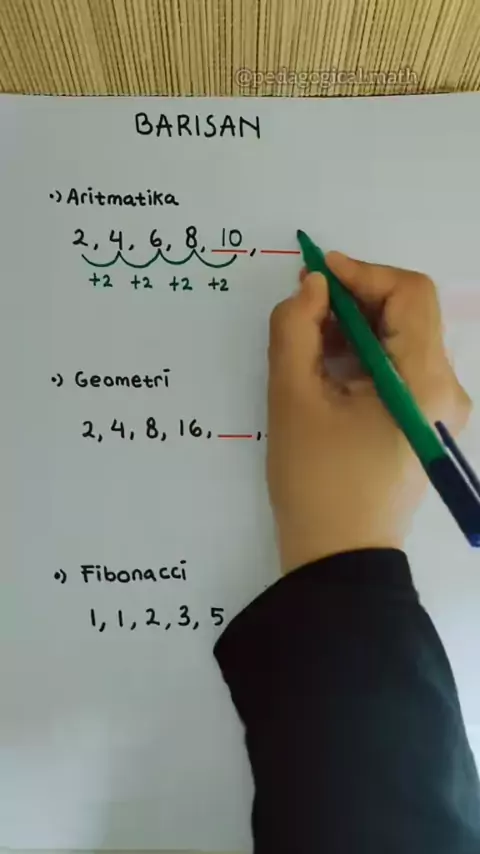 @pedagogical.math
BARISAN
•) Aritmatika
2, 4, 6, 8, 10, __
+2 +2 +2 +2
•) Geometri
2, 4, 8, 16, __,
•) Fibonacci
1, 1, 2, 3, 5